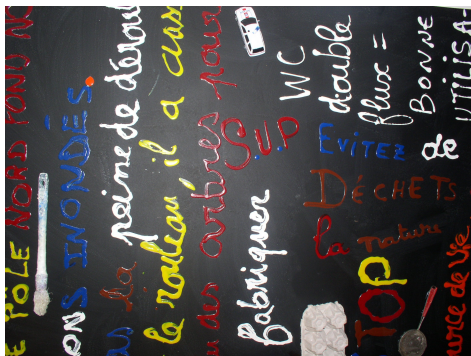 E PÔLE NORD FOND NO
ONS INONDÉS.
la peine de dérou
le rouleau, il a cass
des arbres pour
fabriquer
S.U.P
WC
double
flux =
BONNE
de
UTILISA
EVITEZ
DÉCHETS
la nature
TOP
urce de Vie